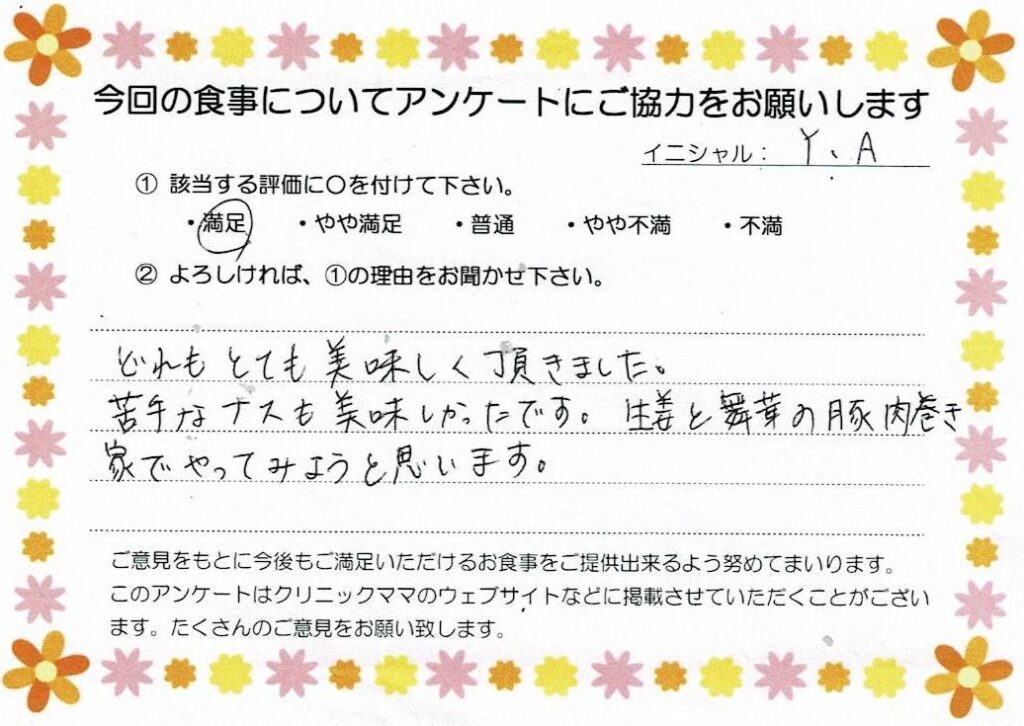 今回の食事についてアンケートにご協力をお願いします
イニシャル： Y、A
① 該当する評価に○を付けて下さい。
・満足 ・やや満足 ・普通 ・やや不満 ・不満
② よろしければ、①の理由をお聞かせ下さい。
どれもとても美味しく頂きました。
苦手なナスも美味しかったです。 生姜と舞芽の豚肉巻き
家でやってみようと思います。
ご意見をもとに今後もご満足いただけるお食事をご提供出来るよう努めてまいります。
このアンケートはクリニックママのウェブサイトなどに掲載させていただくことがござい
ます。たくさんのご意見をお願い致します。